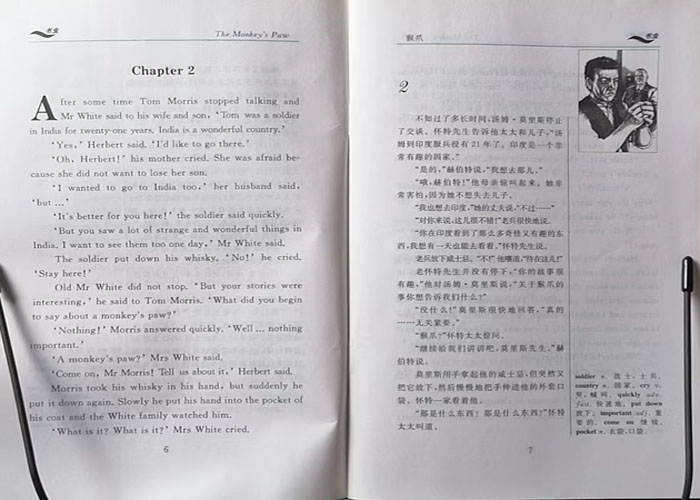 书虫
The Monkey's Paw
Chapter 2
After some time Tom Morris stopped talking and
Mr White said to his wife and son, 'Tom was a soldier
in India for twenty-one years. India is a wonderful country.'
'Yes,' Herbert said. 'I'd like to go there.'
'Oh, Herbert!' his mother cried. She was afraid be-
cause she did not want to lose her son.
'I wanted to go to India too,' her husband said,
'but …'
'It's better for you here!' the soldier said quickly.
'But you saw a lot of strange and wonderful things in
India. I want to see them too one day,' Mr White said.
The soldier put down his whisky. 'No!' he cried.
'Stay here!'
Old Mr White did not stop. 'But your stories were
interesting,' he said to Tom Morris. 'What did you begin
to say about a monkey's paw?'
'Nothing!' Morris answered quickly. 'Well … nothing
important.'
'A monkey's paw?' Mrs White said.
'Come on, Mr Morris! Tell us about it,' Herbert said.
Morris took his whisky in his hand, but suddenly he
put it down again. Slowly he put his hand into the pocket of
his coat and the White family watched him.
'What is it? What is it?' Mrs White cried.
6
猴爪
书虫
2
不知过了多长时间,汤姆·莫里斯停止
了交谈。怀特先生告诉他太太和儿子,“汤
姆到印度服兵役有 21 年了。印度是一个非
常有趣的国家。”
“是的,”赫伯特说,“我想去那儿。”
“哦,赫伯特!”他母亲惊叫起来。她非
常害怕,因为她不想失去儿子。
“我也想去印度,”她的丈夫说,“不过……”
“对你来说,这儿很不错!”老兵很快地说。
“你在印度看到了那么多奇怪又有趣的东
西,我想有一天也能去看看,”怀特先生说。
老兵放下威士忌。“不!”他嚷道,“待在这儿!”
老怀特先生并没有停下,“你的故事很
有趣,”他对汤姆·莫里斯说,“关于猴爪的
事你想告诉我们什么?”
“没什么!”莫里斯很快地回答,“真的
……无关紧要。”
“猴爪?”怀特太太惊问。
“继续给我们讲讲吧,莫里斯先生。”赫
伯特说。
莫里斯用手拿起他的威士忌,但突然又
把它放下,然后慢慢地把手伸进他的外套口
袋。怀特一家看着他。
“那是什么东西?那是什么东西?”怀特
太太叫道。
soldier n. 战士,士兵。
country n. 国家。cry v.
哭,喊叫。quickly adv.
fast, 快速地。put down
放下。important adj. 重
要的。come on 继续。
pocket n. 衣袋,口袋。
7